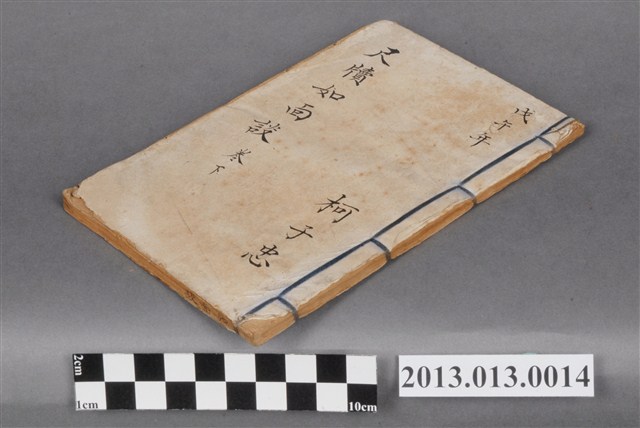 戊午年
尺牘如面談 卷下
柯于忠
2cm
1cm
10cm
2013.013.0014